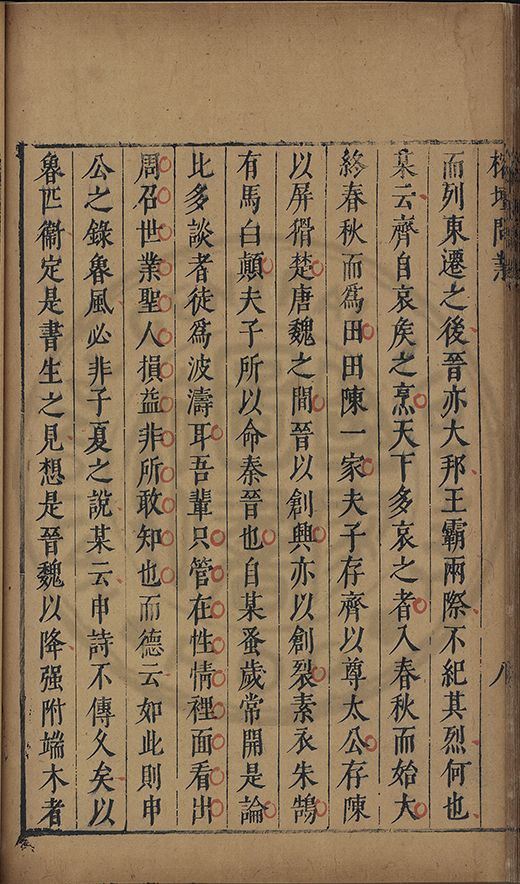 榕壇問業 八
而列東遷之後晉亦大邦王霸兩際不紀其烈何也
某云齊自哀矦之烹天下多哀之者入春秋而始大
終春秋而為田田陳一家夫子存齊以尊太公存陳
以屏猾楚唐魏之間晉以創興亦以創裂素衣朱鵠
有馬白顛夫子所以命秦晉也自某蚤歲常開是論
比多談者徒為波濤耳吾輩只管在性情裡面看出
周召世業聖人損益非所敢知也而德云如此則申
公之錄魯風必非子夏之說某云申詩不傳久矣以
魯匹衞定是書生之見想是晉魏以降强附端木者